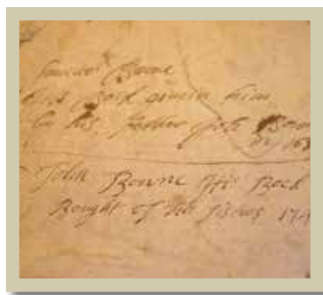 Samuel Bowne
His Book given him
by his father John Bow
John Bowne His Book
Bought of his sisters 17